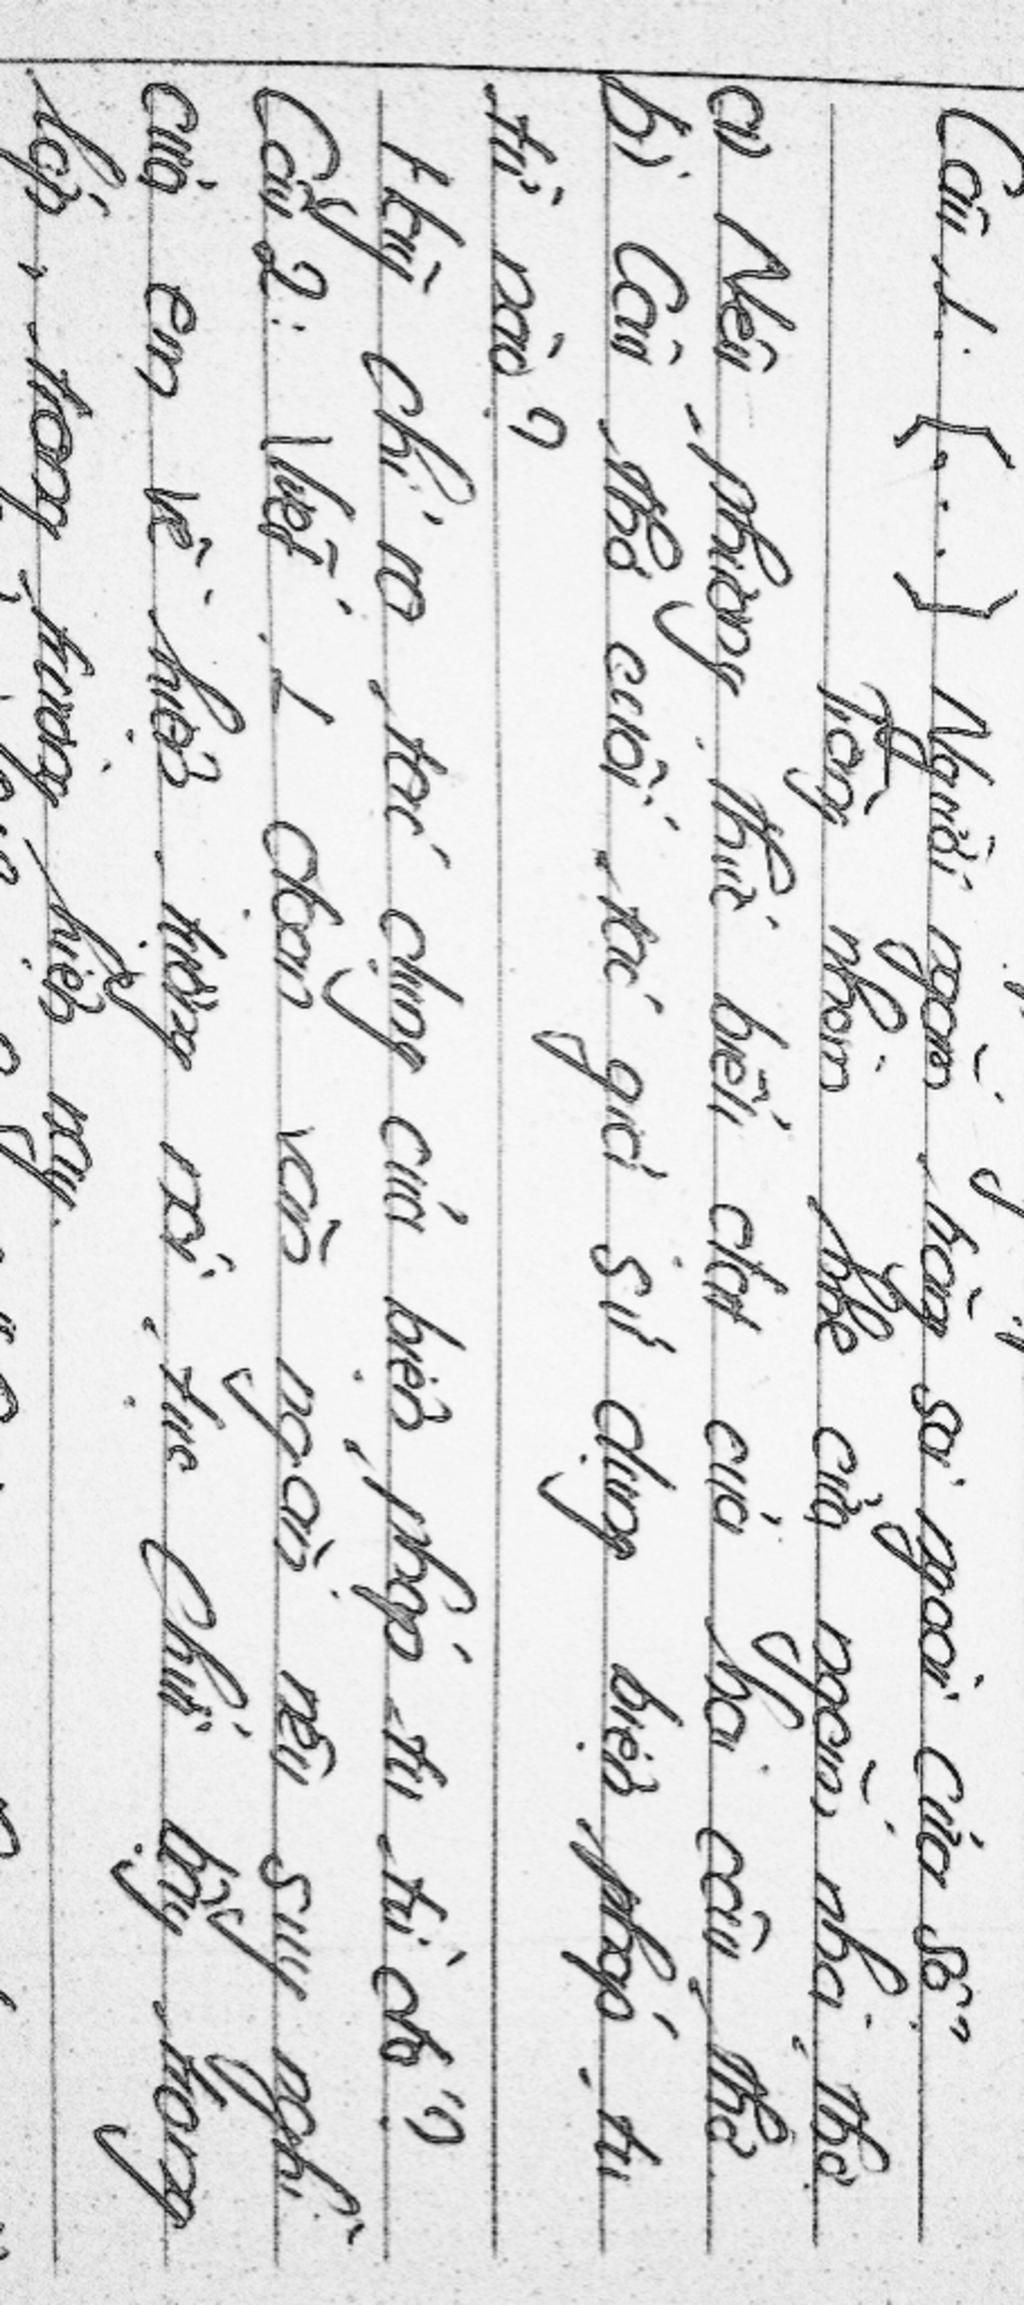 Câu 1: {...} Người ngắm trăng soi ngoài cửa sổ
Trăng nhòm khe cửa ngắm nhà thơ
a) Nêu phương thức biểu đạt của hai câu thơ
b) Câu thơ cuối tác giả sử dụng biện pháp tu
từ nào?
Hãy chỉ ra tác dụng của biện pháp tu từ đó?
Câu 2: Viết 1 đoạn văn ngắn nêu suy nghĩ
của em về hiện tượng nói tục chửi bậy trong
lớp, trong trường hiện nay.